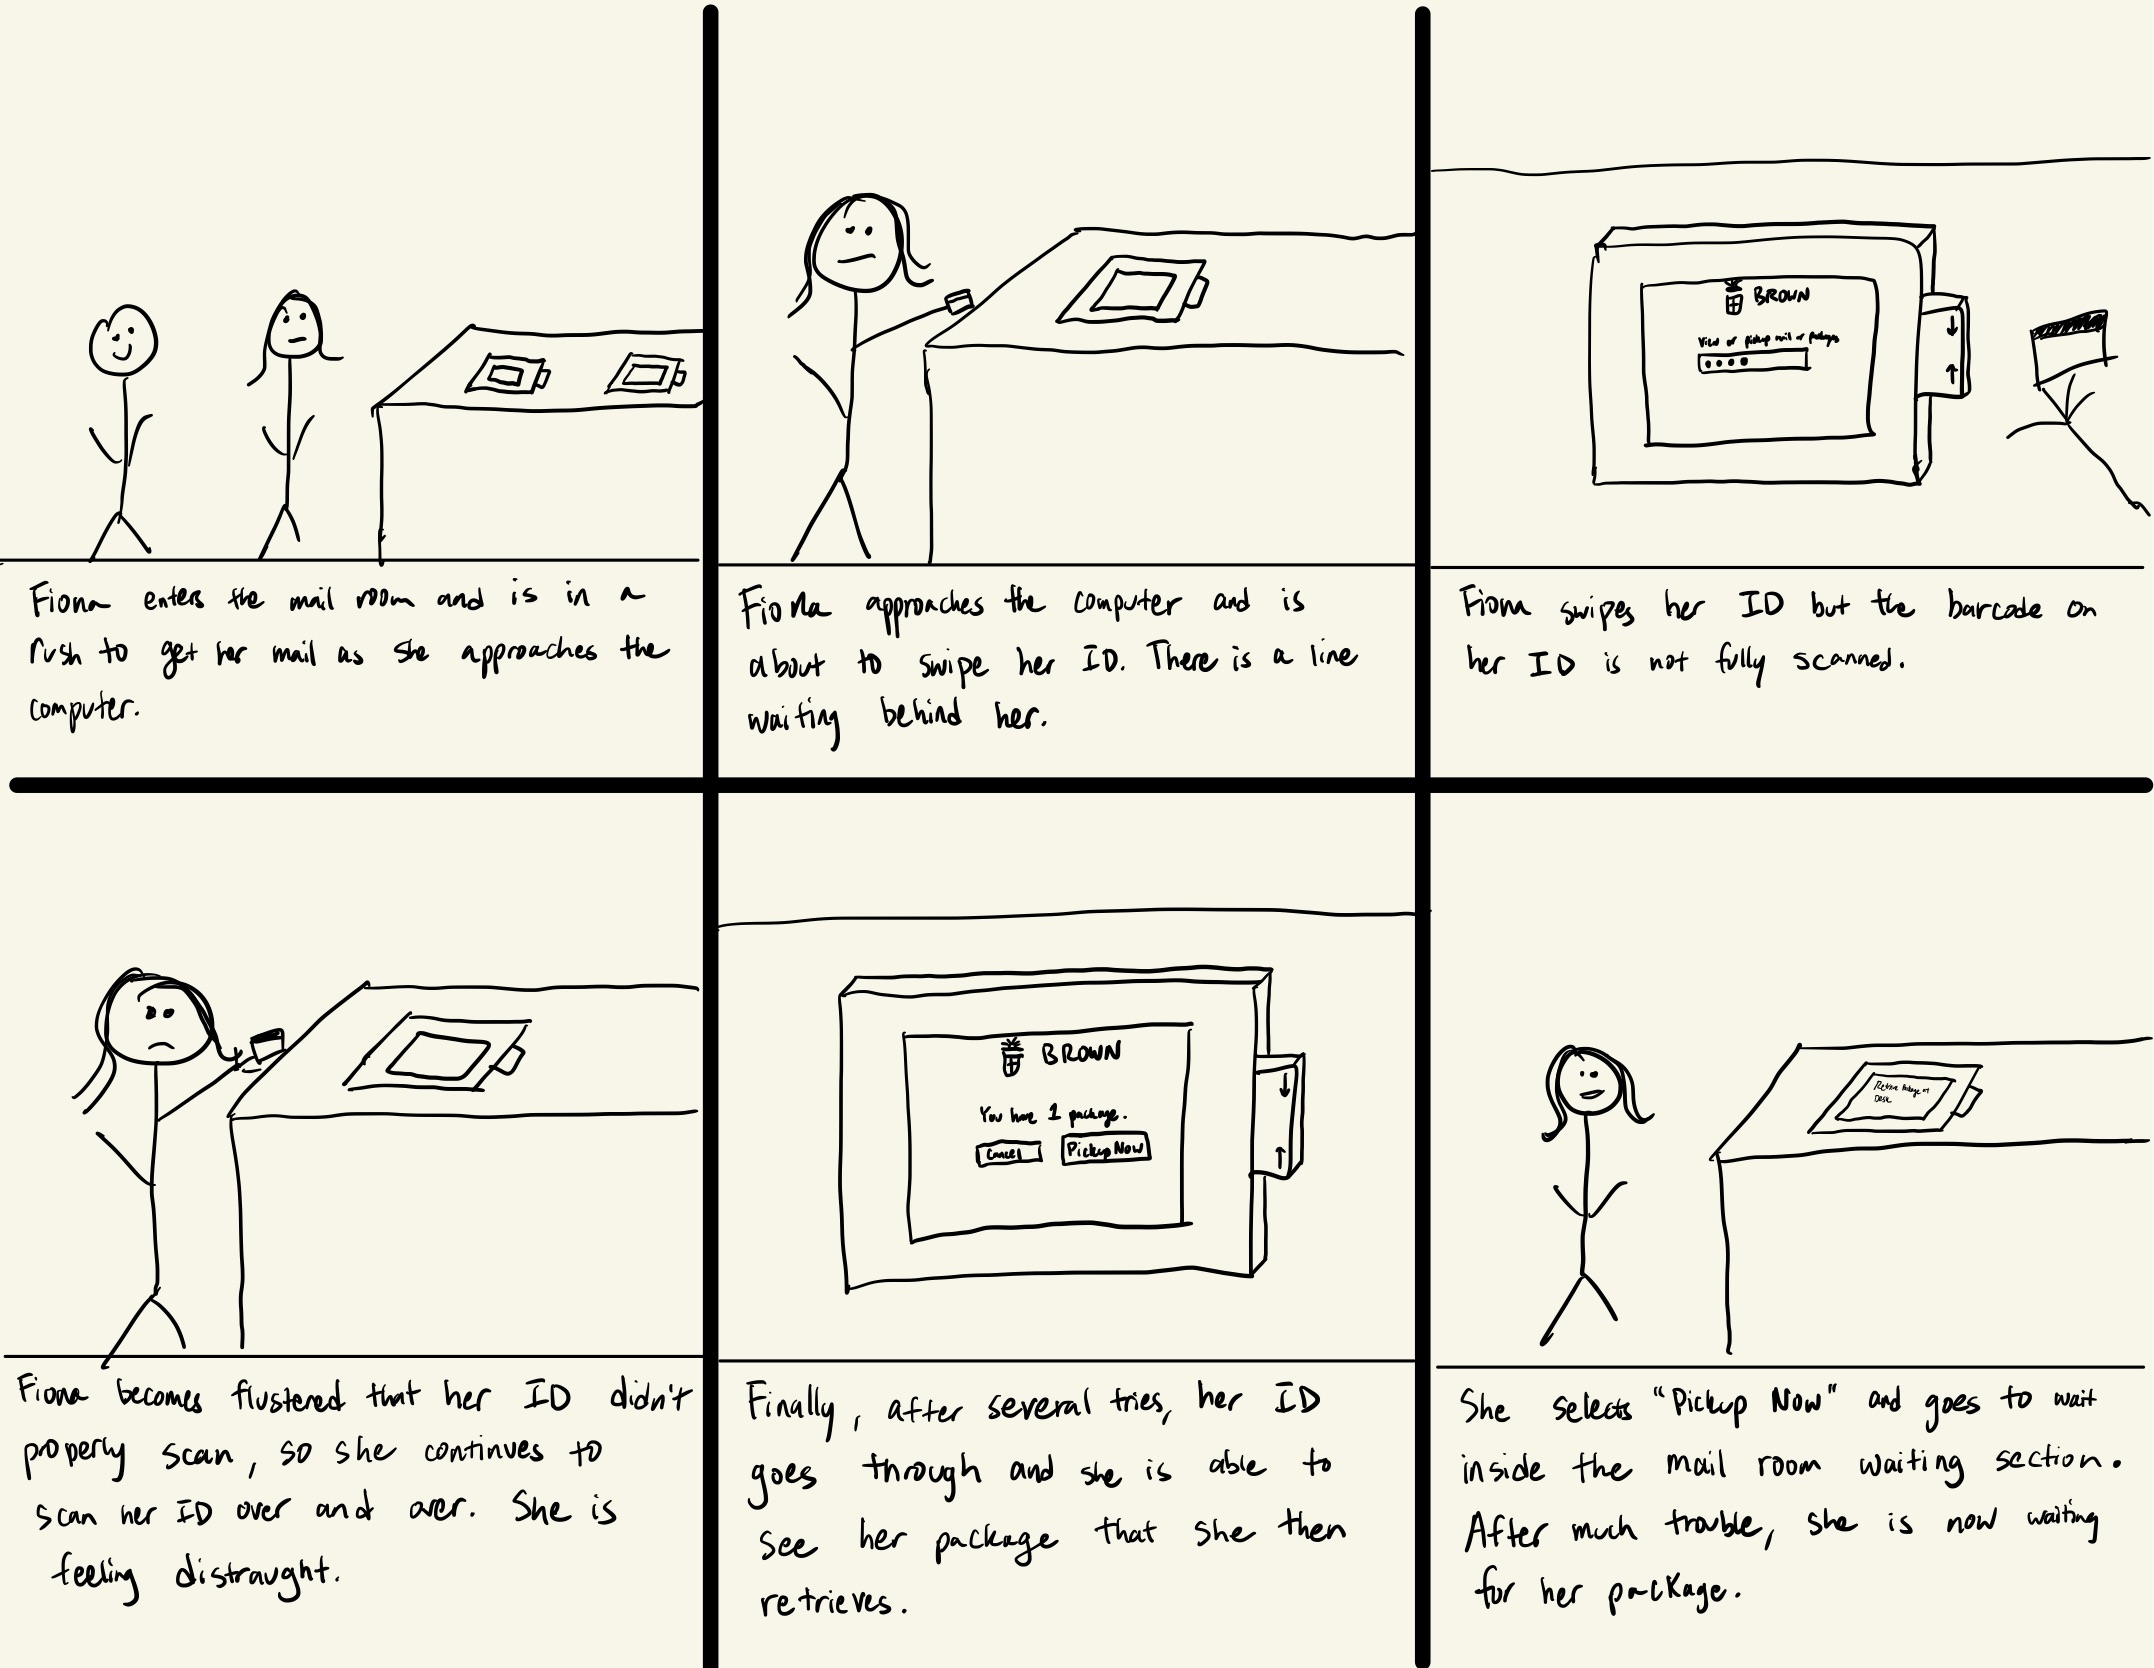 Fiona enters the mail room and is in a
rush to get her mail as she approaches the
computer.
Fiona approaches the computer and is
about to swipe her ID. There is a line
waiting behind her.
BROWN
View or pickup mail or packages
Fiona swipes her ID but the barcode on
her ID is not fully scanned.
Fiona becomes flustered that her ID didn't
properly scan, so she continues to
scan her ID over and over. She is
feeling distraught.
BROWN
You have 1 package.
Cancel
Pickup Now
Finally, after several tries, her ID
goes through and she is able to
see her package that she then
retrieves.
Package at
Desk
She selects "Pickup Now" and goes to wait
inside the mail room waiting section.
After much trouble, she is now waiting
for her package.